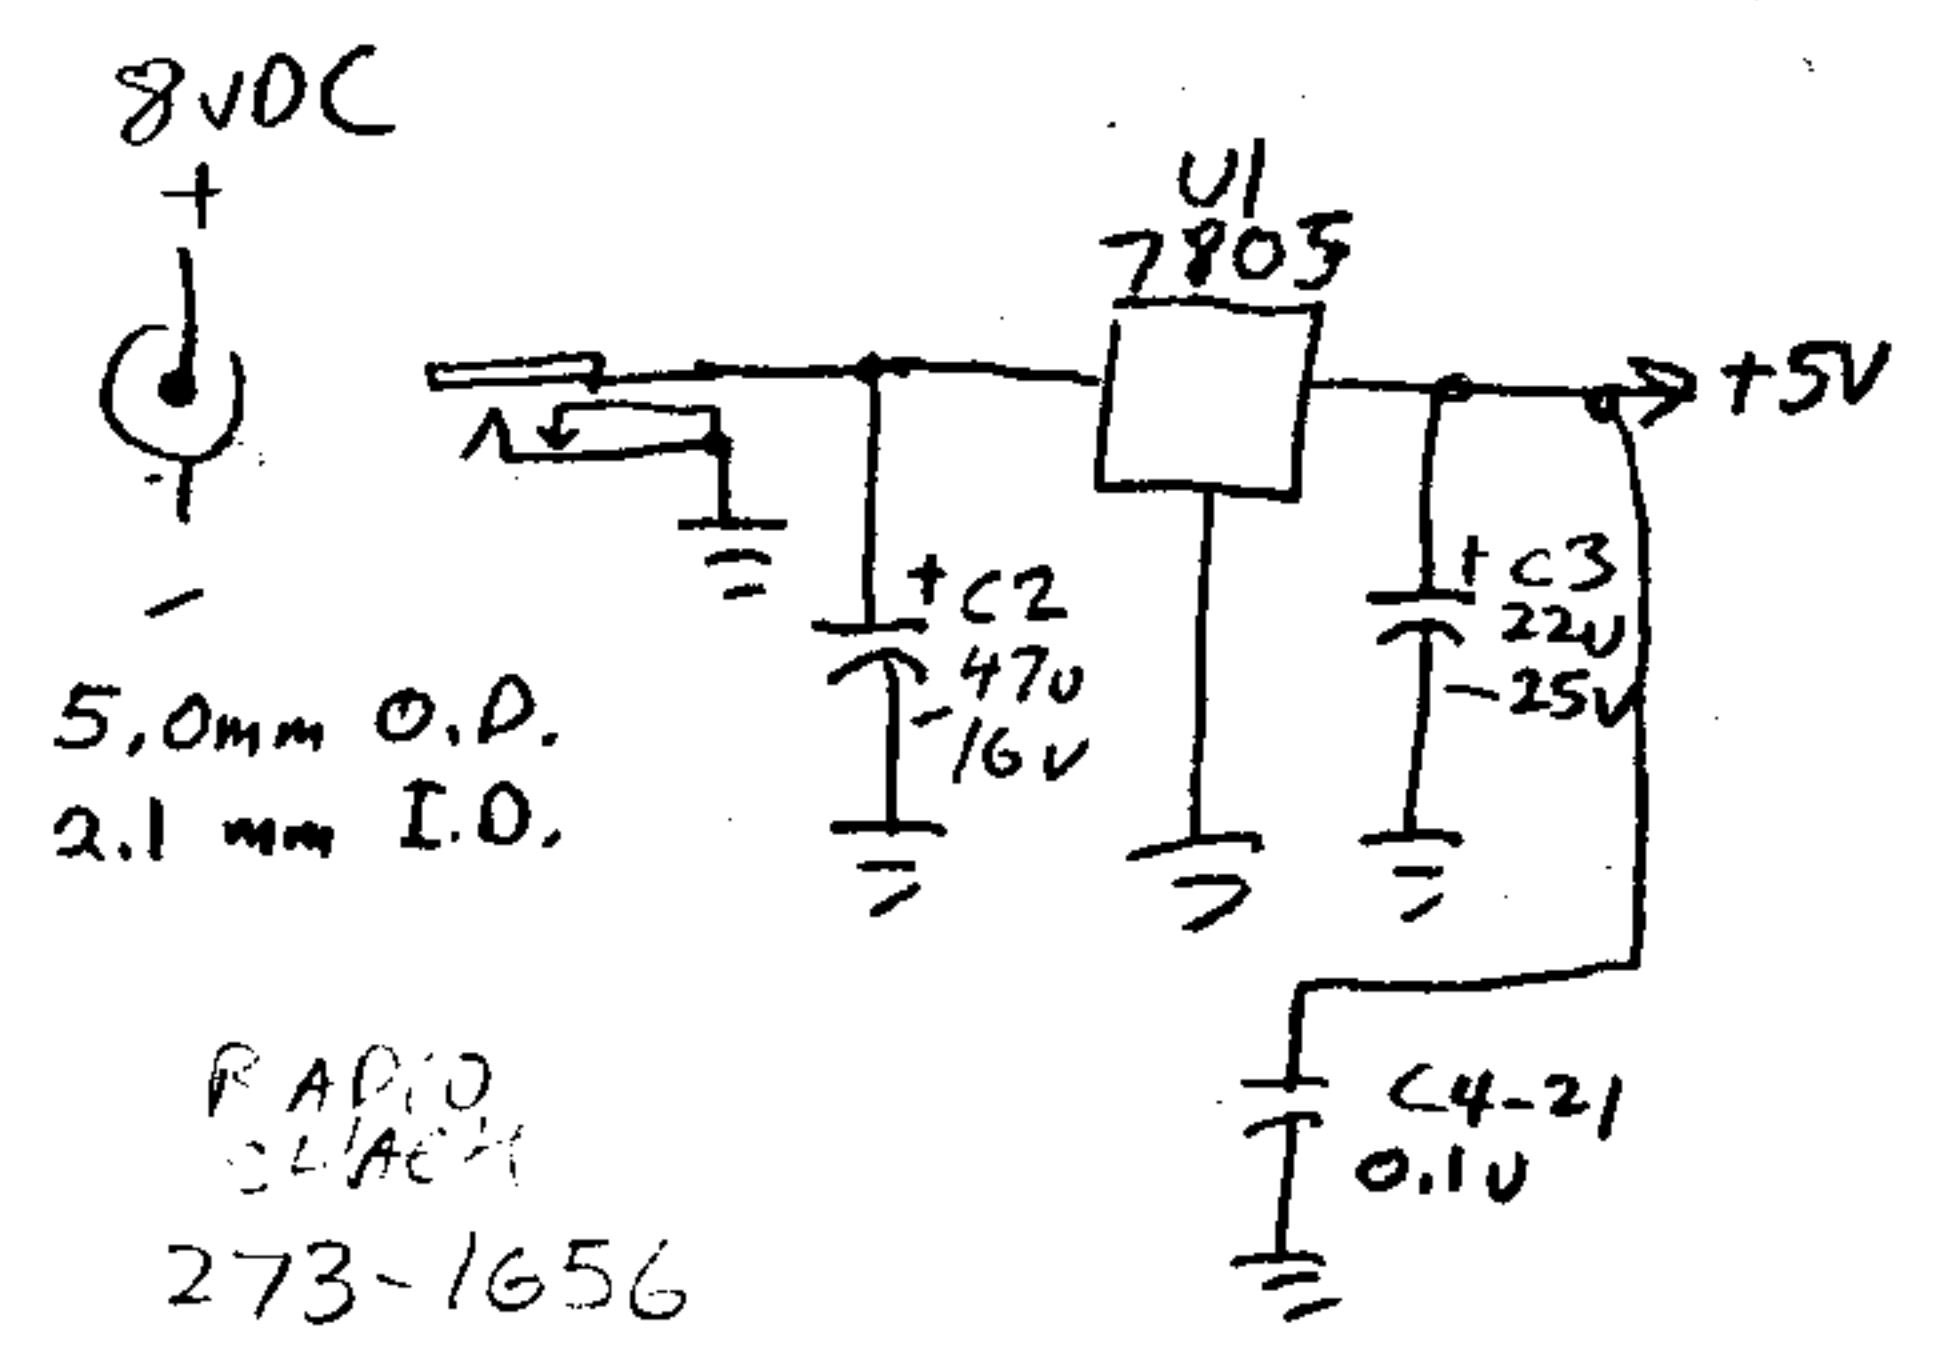 8VDC
+
-
-
5.0mm O.D.
2.1 mm I.D.
RADIO
SHACK
273-1656
U1
7805
+5V
+ C2
47u
-
16V
+ C3
22u
- 25V
C4-21
0.1u